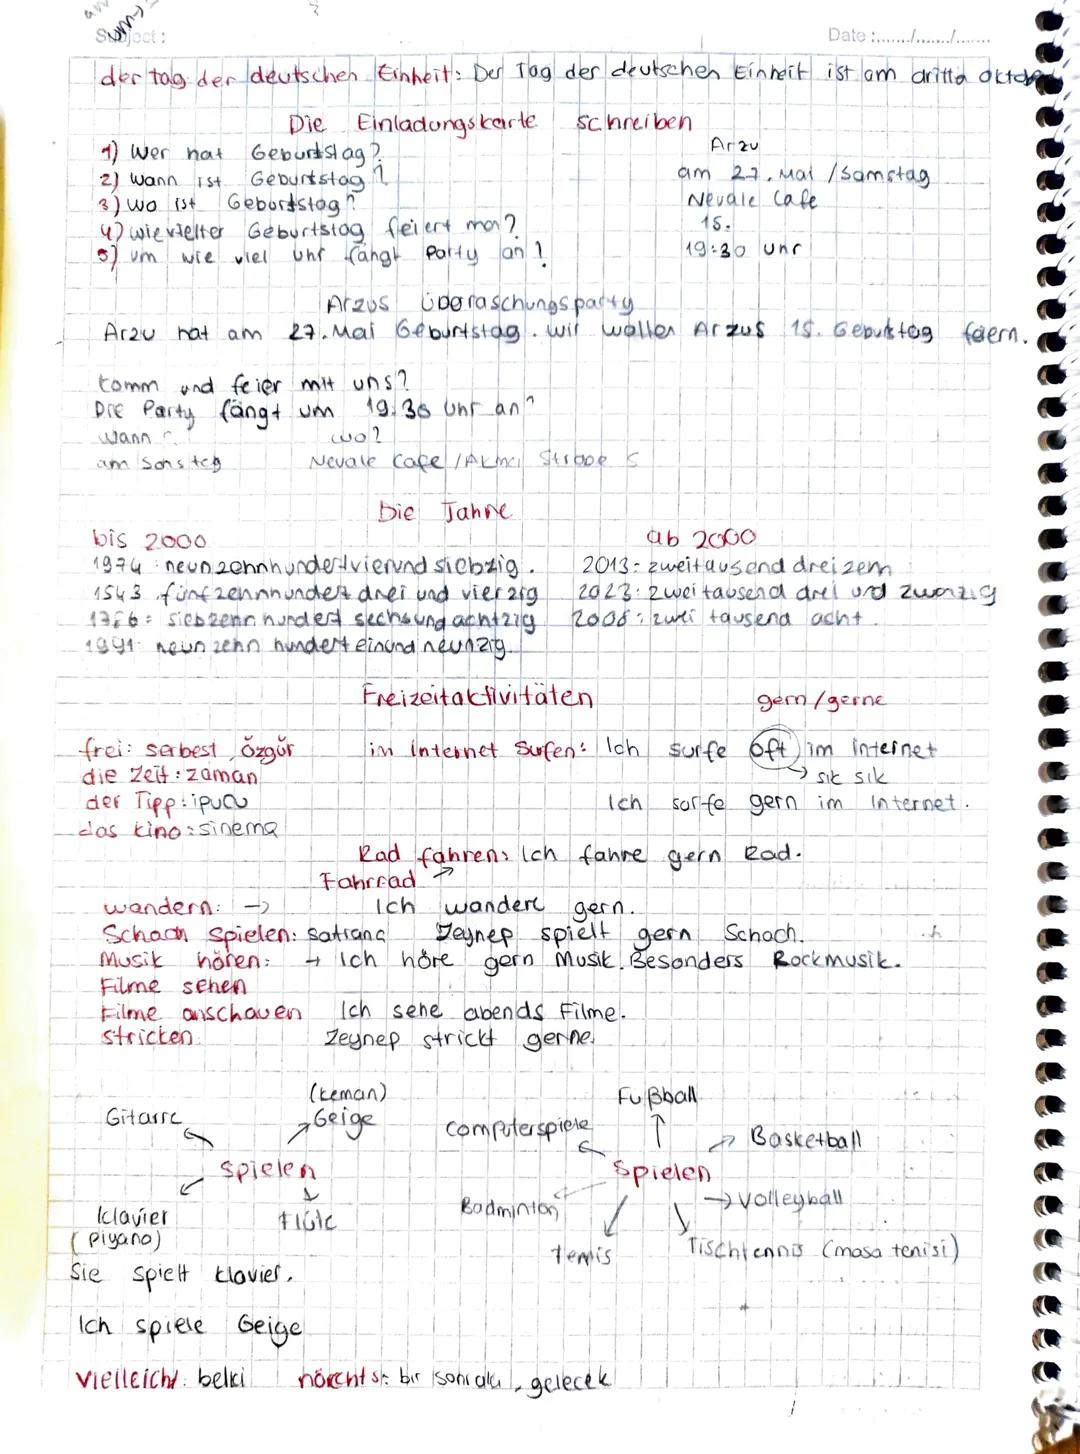 Subject :
Date :......./......./.......
der tag der deutschen Einheit: Der Tag der deutschen Einheit ist am dritta oktober
Die Einladungskarte schreiben
1) Wer hat Geburtstag? Arzu
2) Wann ist Geburtstag? am 27. Mai / Samstag
3) Wo ist Geburtstag? Nevale Cafe
4) wievielter Geburtstag feiert man? 15.
5) um wie viel uhr fängt Party an? 19:30 uhr
Arzus überaschungsparty
Arzu hat am 27. Mai Geburtstag. wir wollen Arzus 15. Geburtstag feiern.
komm und feier mit uns?
Die Party fängt um 19.30 Uhr an
Wann ? wo?
am Nevale Cafe /
Die Jahre
bis 2000 ab 2000
1974 neunzehnhundertvierundsiebzig. 2013: zweitausend dreizem
1543 fünfzehnhundert drei und vierzig 2023: zweitausend drei und zwanzig
siebzehn hundert sechsundachtzig zwei tausend acht.
1991 neun zehn hundert einund neunzig.
Freizeitaktivitäten gern / gerne
frei: serbest, özgür im internet Surfen: Ich surfe oft im internet
die Zeit: zaman → sık sık
der Tipp: ipucu Ich surfe gern im Internet.
das kino: sinema
Rad fahren: Ich fahre gern Rad.
Fahrrad
wandern: → Ich wandere gern.
Schach Spielen: satranç Zeynep spielt gern Schach.
Musik hören: → Ich höre gern Musik. Besonders Rockmusik.
Filme sehen
Filme anschauen Ich sehe abends Filme.
stricken: Zeynep strickt gerne.
(keman) Fußball
Gitarre Geige Computerspiele Basketball
Spielen Spielen
Badminton → Volleyball
Klavier Flöte
(piyano) Tennis Tischtennis (masa tenisi)
Sie spielt klavier.
Ich spiele Geige
vielleicht: belki bir sonraki, gelecek